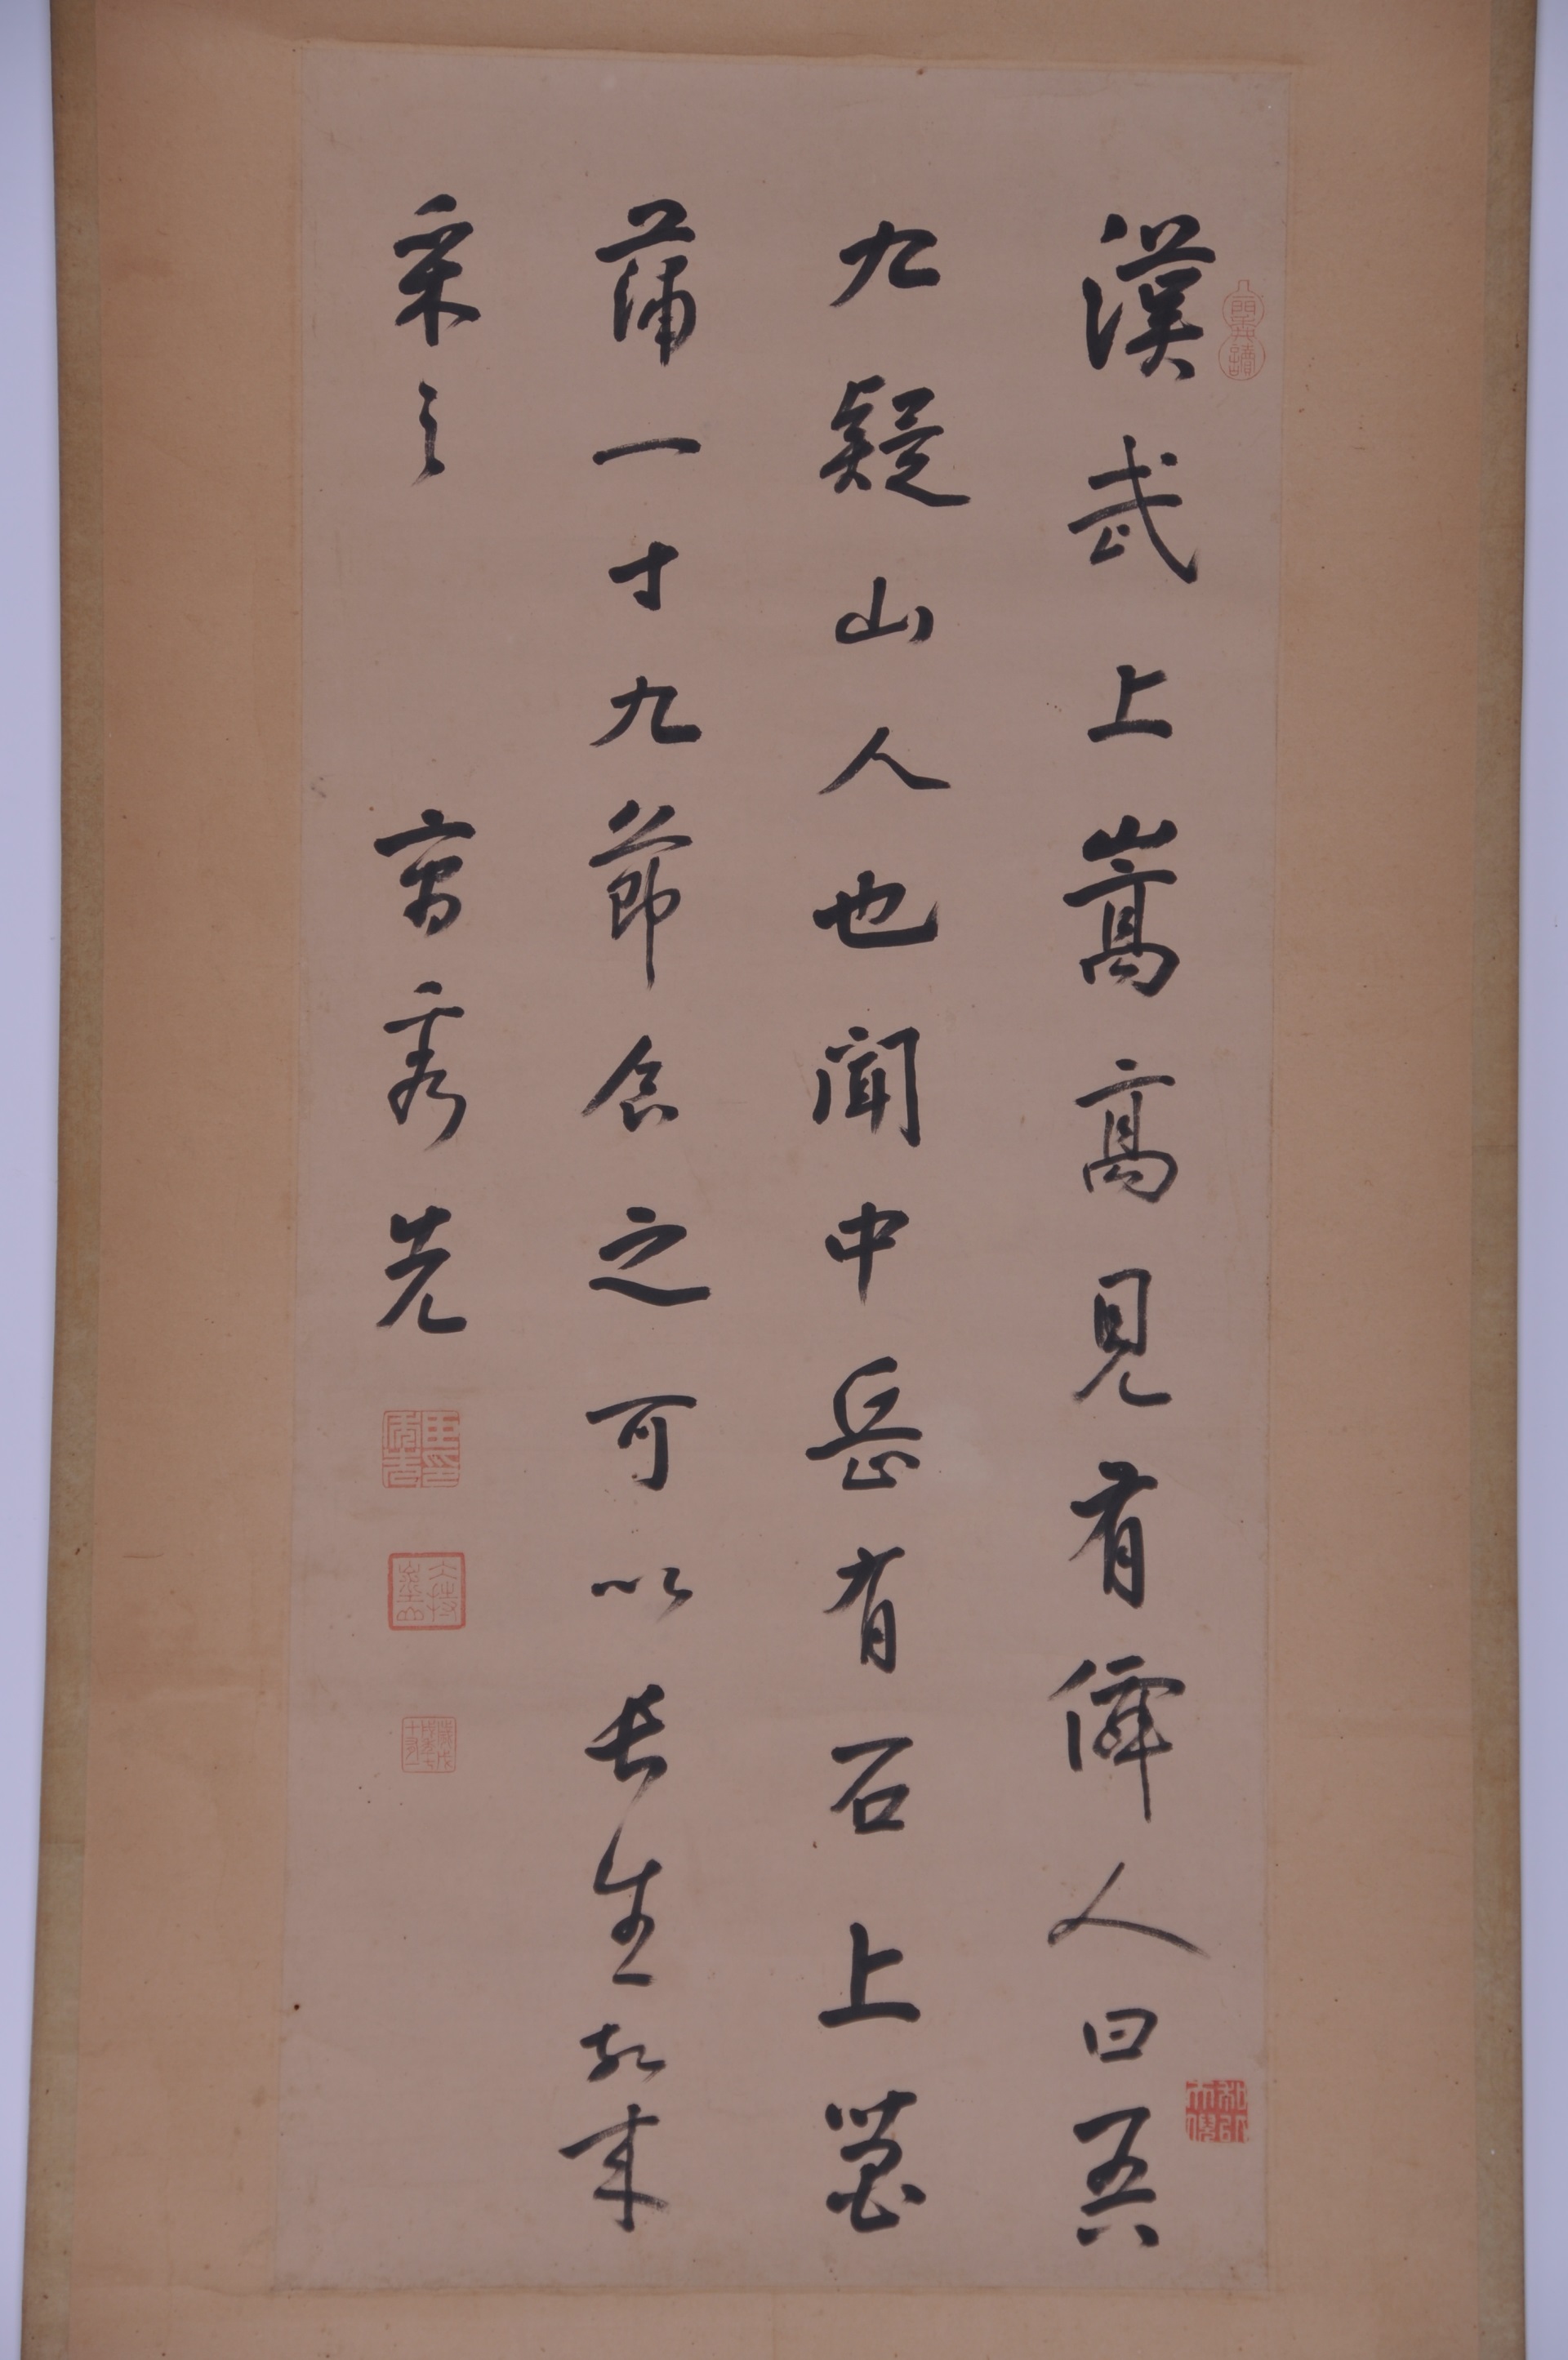 漢武上嵩高見有僊人曰吾
九疑山人也聞中岳有石上菖
蒲一寸九節食之可以長生故来
采之
高秀先